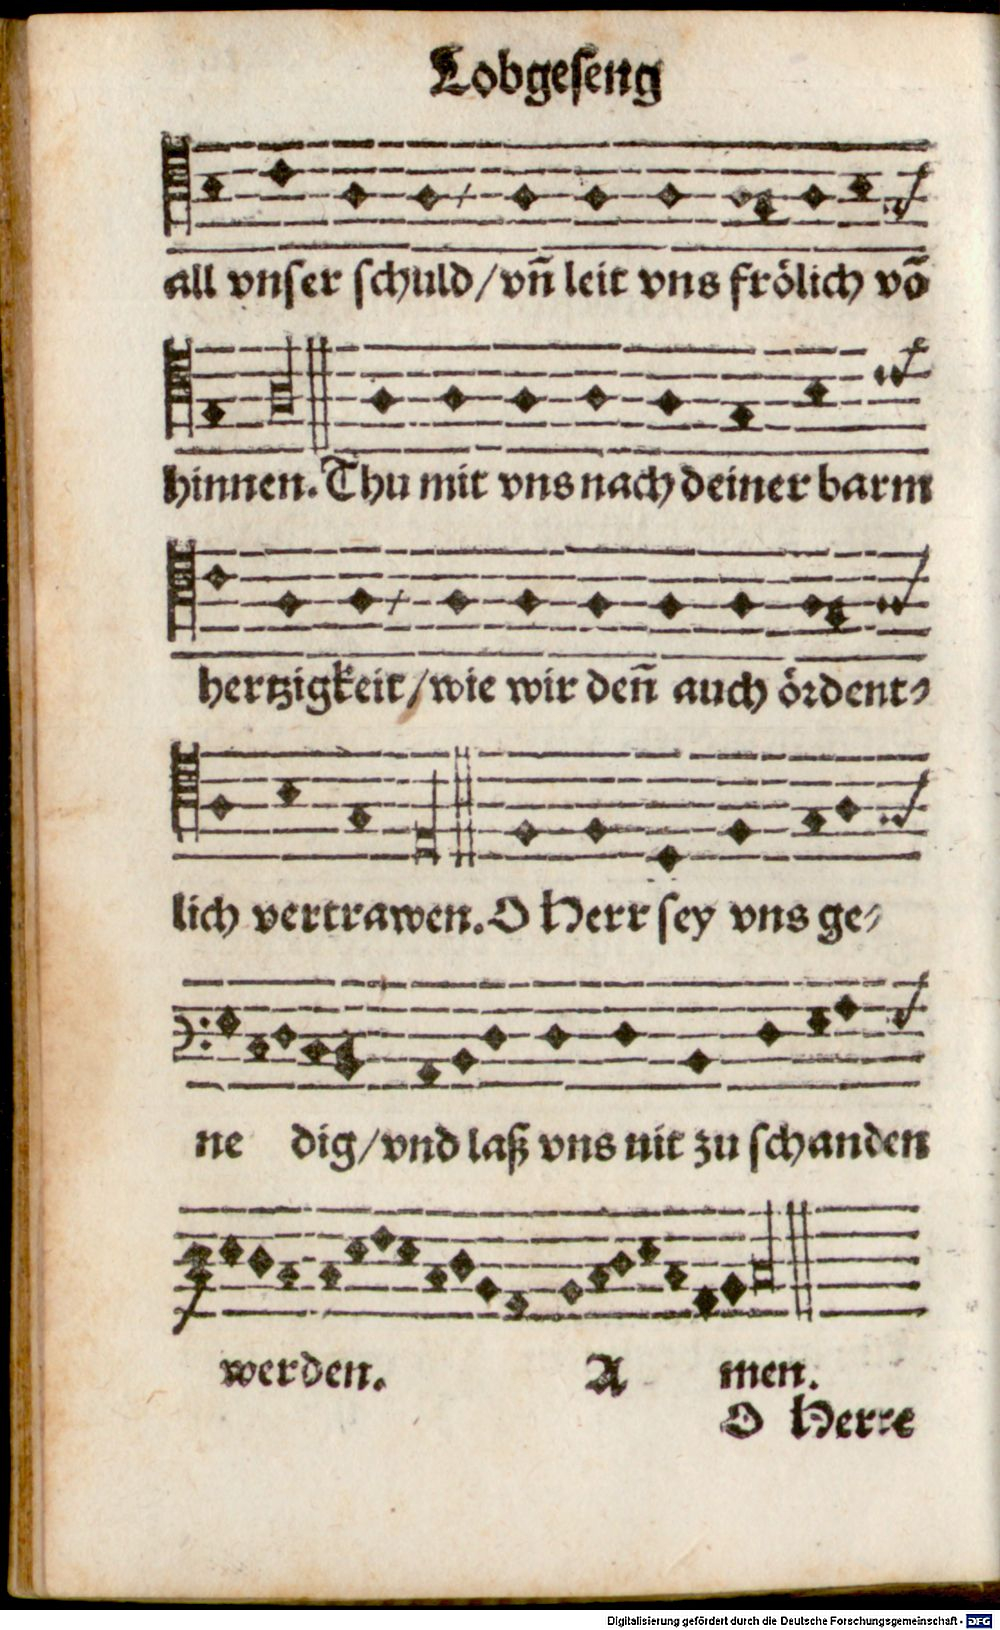 Lobgeseng
all vnser schuld/vñ leit vns frölich võ
hinnen. Thu mit vns nach deiner barm
hertzigkeit/wie wir deñ auch ördent⸗
lich vertrawen. O Herr sey vns ge⸗
ne dig/vnd laß vns nit zu schanden
werden. A men.
O Herre
Digitalisierung gefördert durch die Deutsche Forschungsgemeinschaft - DFG